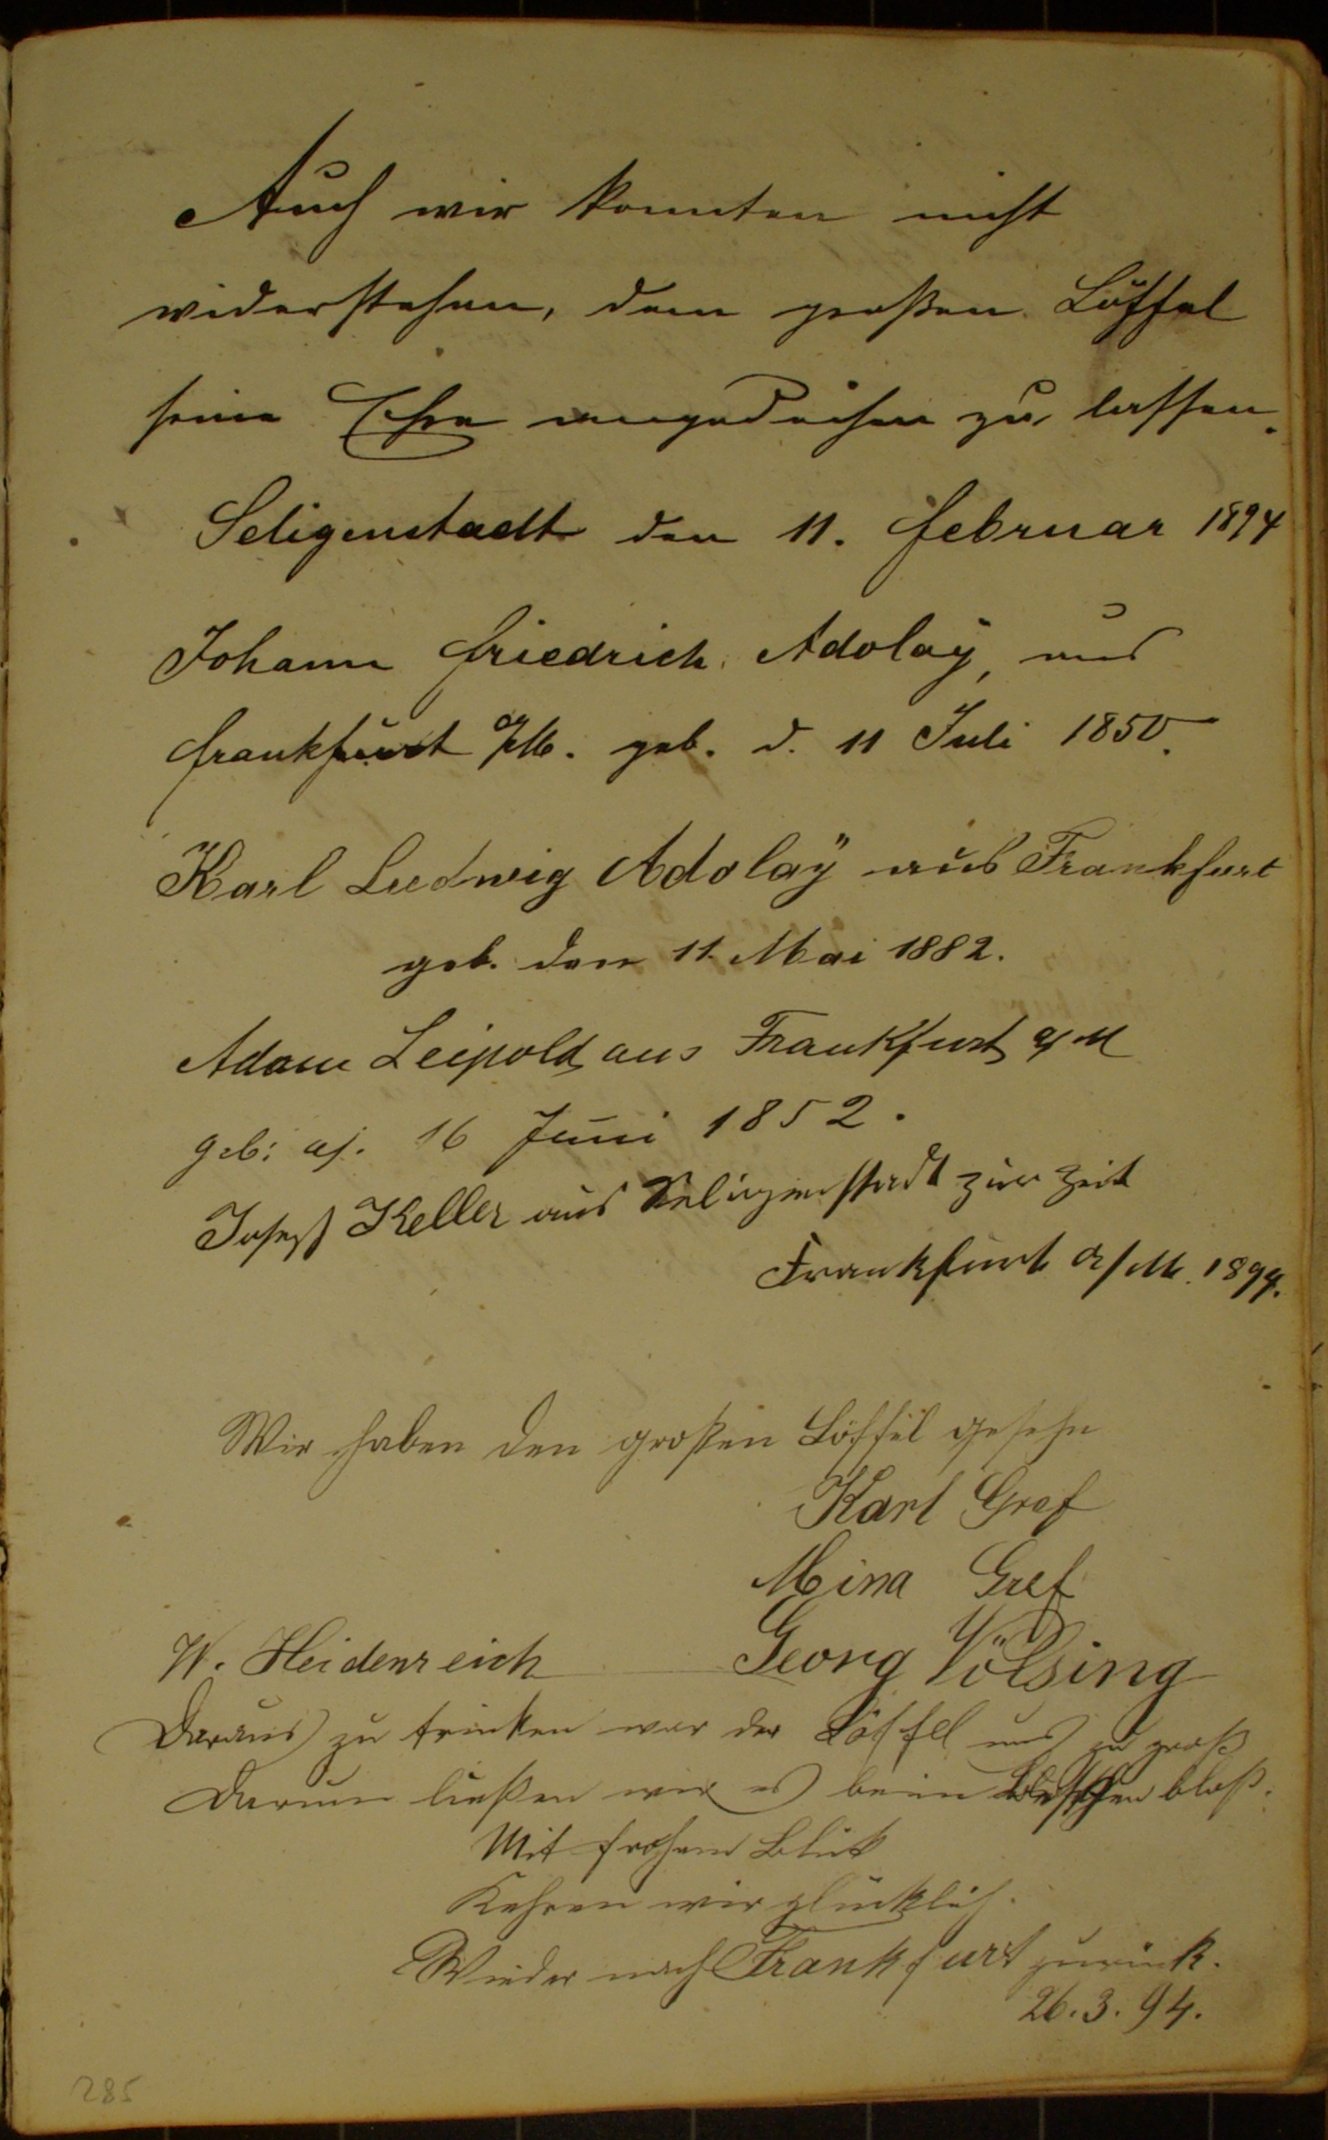 Auch wir konnten nicht
widerstehen, dem großen Löffel
seine Ehre angedeihen zu lassen.
Seligenstadt den 11. Februar 1894
Johann Friedrich Adolaÿ, aus
Frankfurt a/M. geb. d. 11 Juli 1850.
Karl Ludwig Adolaÿ aus Frankfurt
geb. den 11. Mai 1882.
Adam Leipold aus Frankfurt a/M
geb: a/. 16 Juni 1852.
Josef Keller aus Seligenstadt zur Zeit
Frankfurt a/M. 1894.
Wir haben den großen Löffel gesehn
Karl Graf
Mina Graf
W. Heidenreich Georg Völsing
Daraus zu trinken war der Löffel uns zu groß
Darum ließen wir es beim bloß.
Mit frohem Blick
Kehren wir glücklich.
Wieder nach Frankfurt zurück.
26.3.94.
285